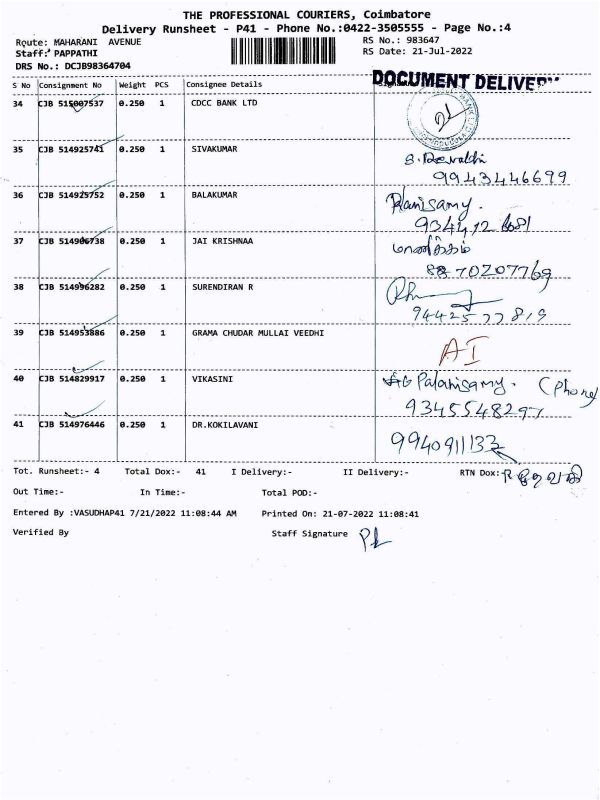 THE PROFESSIONAL COURIERS, Coimbatore
Delivery Runsheet - P41 - Phone No.:0422-3505555 - Page No.:4
Route: MAHARANI AVENUE RS No.: 983647
Staff: PAPPATHI RS Date: 21-Jul-2022
DRS No.: DCJB98364704
DOCUMENT DELIVERY
S No Consignment No Weight PCS Consignee Details
34 CJB 515007537 0.250 1 CDCC BANK LTD
35 CJB 514925741 0.250 1 SIVAKUMAR
9943446699
36 CJB 514925752 0.250 1 BALAKUMAR Palanisamy.
37 CJB 514906738 0.250 1 JAI KRISHNAA
8870207769
38 CJB 514996282 0.250 1 SURENDIRAN R
9442577819
39 CJB 514953886 0.250 1 GRAMA CHUDAR MULLAI VEEDHI
AI
40 CJB 514829917 0.250 1 VIKASINI Palanisamy. (Phone)
9345548297
41 CJB 514976446 0.250 1 DR.KOKILAVANI
9940911133
Tot. Runsheet:- 4 Total Dox:- 41 I Delivery:- II Delivery:- RTN Dox:-
Out Time:- In Time:- Total POD:-
Entered By :VASUDHAP41 7/21/2022 11:08:44 AM Printed On: 21-07-2022 11:08:41
Verified By Staff Signature